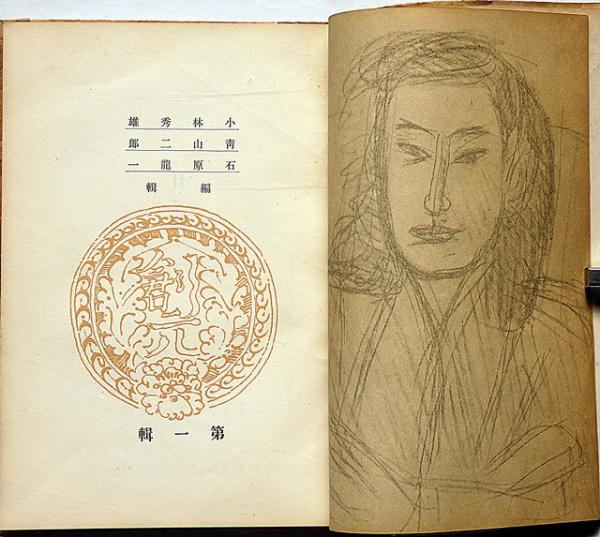 小林秀雄
靑山二郎
石原龍一
編輯
第一輯